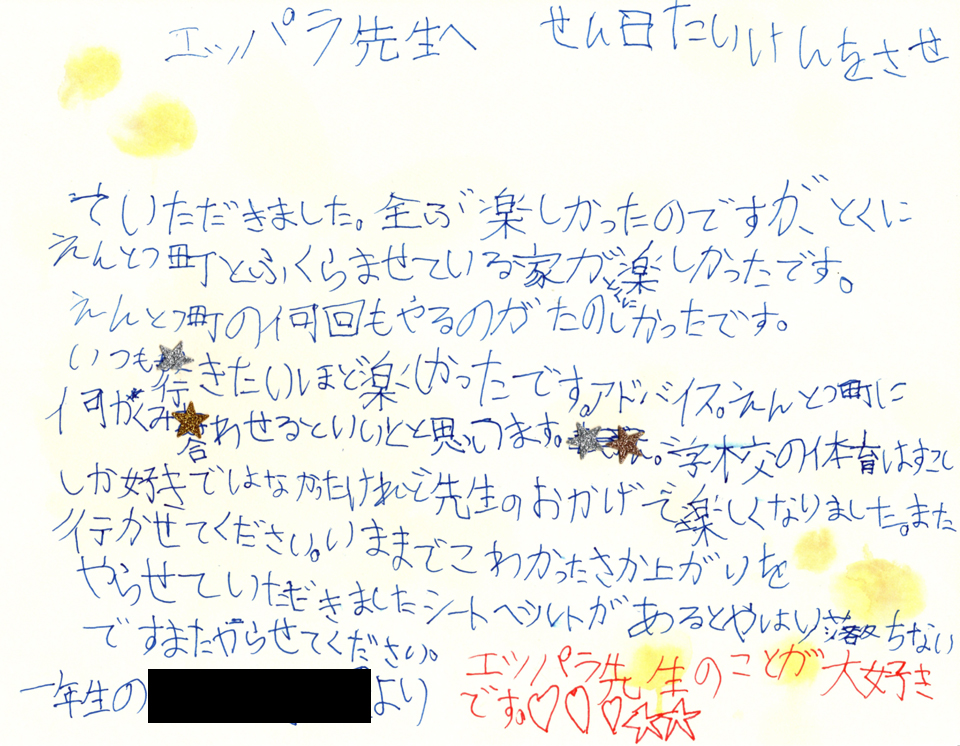 エッパラ先生へ せん日たいけんをさせ
ていただきました。全ぶ楽しかったのですが、とくに
えんとつ町とふくらませている家がとくに楽しかったです。
えんとつ町の何回もやるのがたのしかったです。
いつも行きたいほど楽しかったです。アドバイス。えんとつ町に
何かくみ合わせるといいとと思ってます。学校の体育はすこし
しか好きではなかったけれど先生のおかげで楽しくなりました。また
行かせてください。いままでこわかったさか上がりを
やらせていただきましたシートベルトがあるとやはり落ちない
ですまたやらせてください。
一年生の より
エッパラ先生のことが大好き
です。♡♡♡☆☆